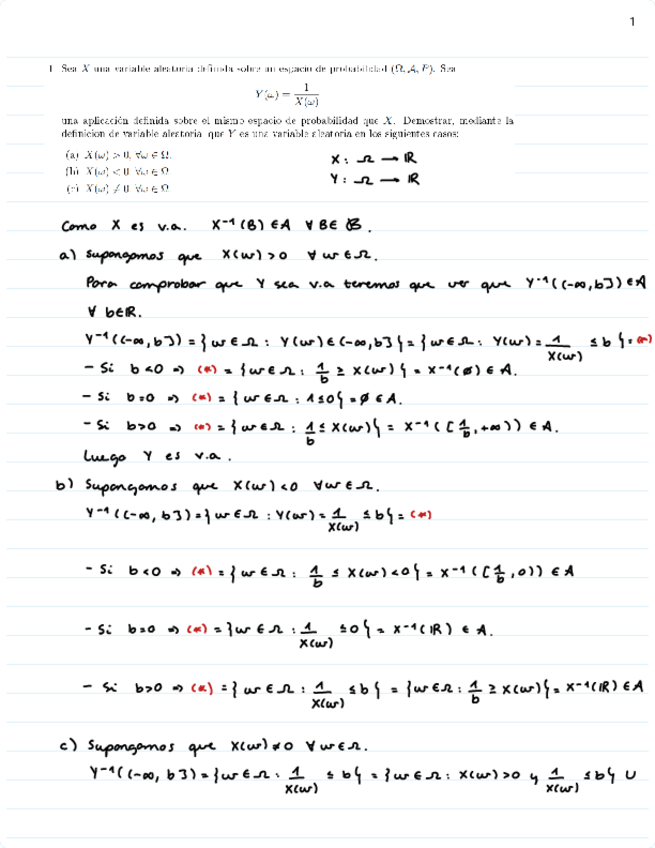 1
1 Sea X una variable aleatoria definida sobre un espacio de probabilidad (Ω, A, P). Sea
Y(ω) = 1/X(ω)
una aplicación definida sobre el mismo espacio de probabilidad que X. Demostrar, mediante la
definicion de variable aleatoria, que Y es una variable aleatoria en los siguientes casos:
(a) X(ω) > 0, ∀ω ∈ Ω.
(b) X(ω) < 0, ∀ω ∈ Ω
(c) X(ω) ≠ 0, ∀ω ∈ Ω
X : Ω → ℝ
Y : Ω → ℝ
Como X es v.a. X⁻¹(B) ∈ A ∀ B ∈ ℬ.
a) Supongamos que X(ω) > 0 ∀ ω ∈ Ω.
Para comprobar que Y sea v.a teremos que ver que Y⁻¹((-∞, b]) ∈ A
∀ b ∈ ℝ.
Y⁻¹((-∞, b]) = {ω ∈ Ω : Y(ω) ∈ (-∞, b]} = {ω ∈ Ω : Y(ω) = 1/X(ω) ≤ b} = (*)
- Si b < 0 ⇒ (*) = {ω ∈ Ω : 1/b ≥ X(ω)} = X⁻¹(∅) ∈ A.
- Si b = 0 ⇒ (*) = {ω ∈ Ω : 1 ≤ 0} = ∅ ∈ A.
- Si b > 0 ⇒ (*) = {ω ∈ Ω : 1/b ≤ X(ω)} = X⁻¹([1/b, +∞)) ∈ A.
Luego Y es v.a.
b) Supongamos que X(ω) < 0 ∀ω ∈ Ω.
Y⁻¹((-∞, b]) = {ω ∈ Ω : Y(ω) = 1/X(ω) ≤ b} = (*)
- Si b < 0 ⇒ (*) = {ω ∈ Ω : 1/b ≤ X(ω) < 0} = X⁻¹([1/b, 0)) ∈ A
- Si b = 0 ⇒ (*) = {ω ∈ Ω : 1/X(ω) ≤ 0} = X⁻¹(ℝ) ∈ A.
- Si b > 0 ⇒ (*) = {ω ∈ Ω : 1/X(ω) ≤ b} = {ω ∈ Ω : 1/b ≥ X(ω)} = X⁻¹(ℝ) ∈ A
c) Supongamos que X(ω) ≠ 0 ∀ ω ∈ Ω.
Y⁻¹((-∞, b]) = {ω ∈ Ω : 1/X(ω) ≤ b} = {ω ∈ Ω : X(ω) > 0 y 1/X(ω) ≤ b} ∪